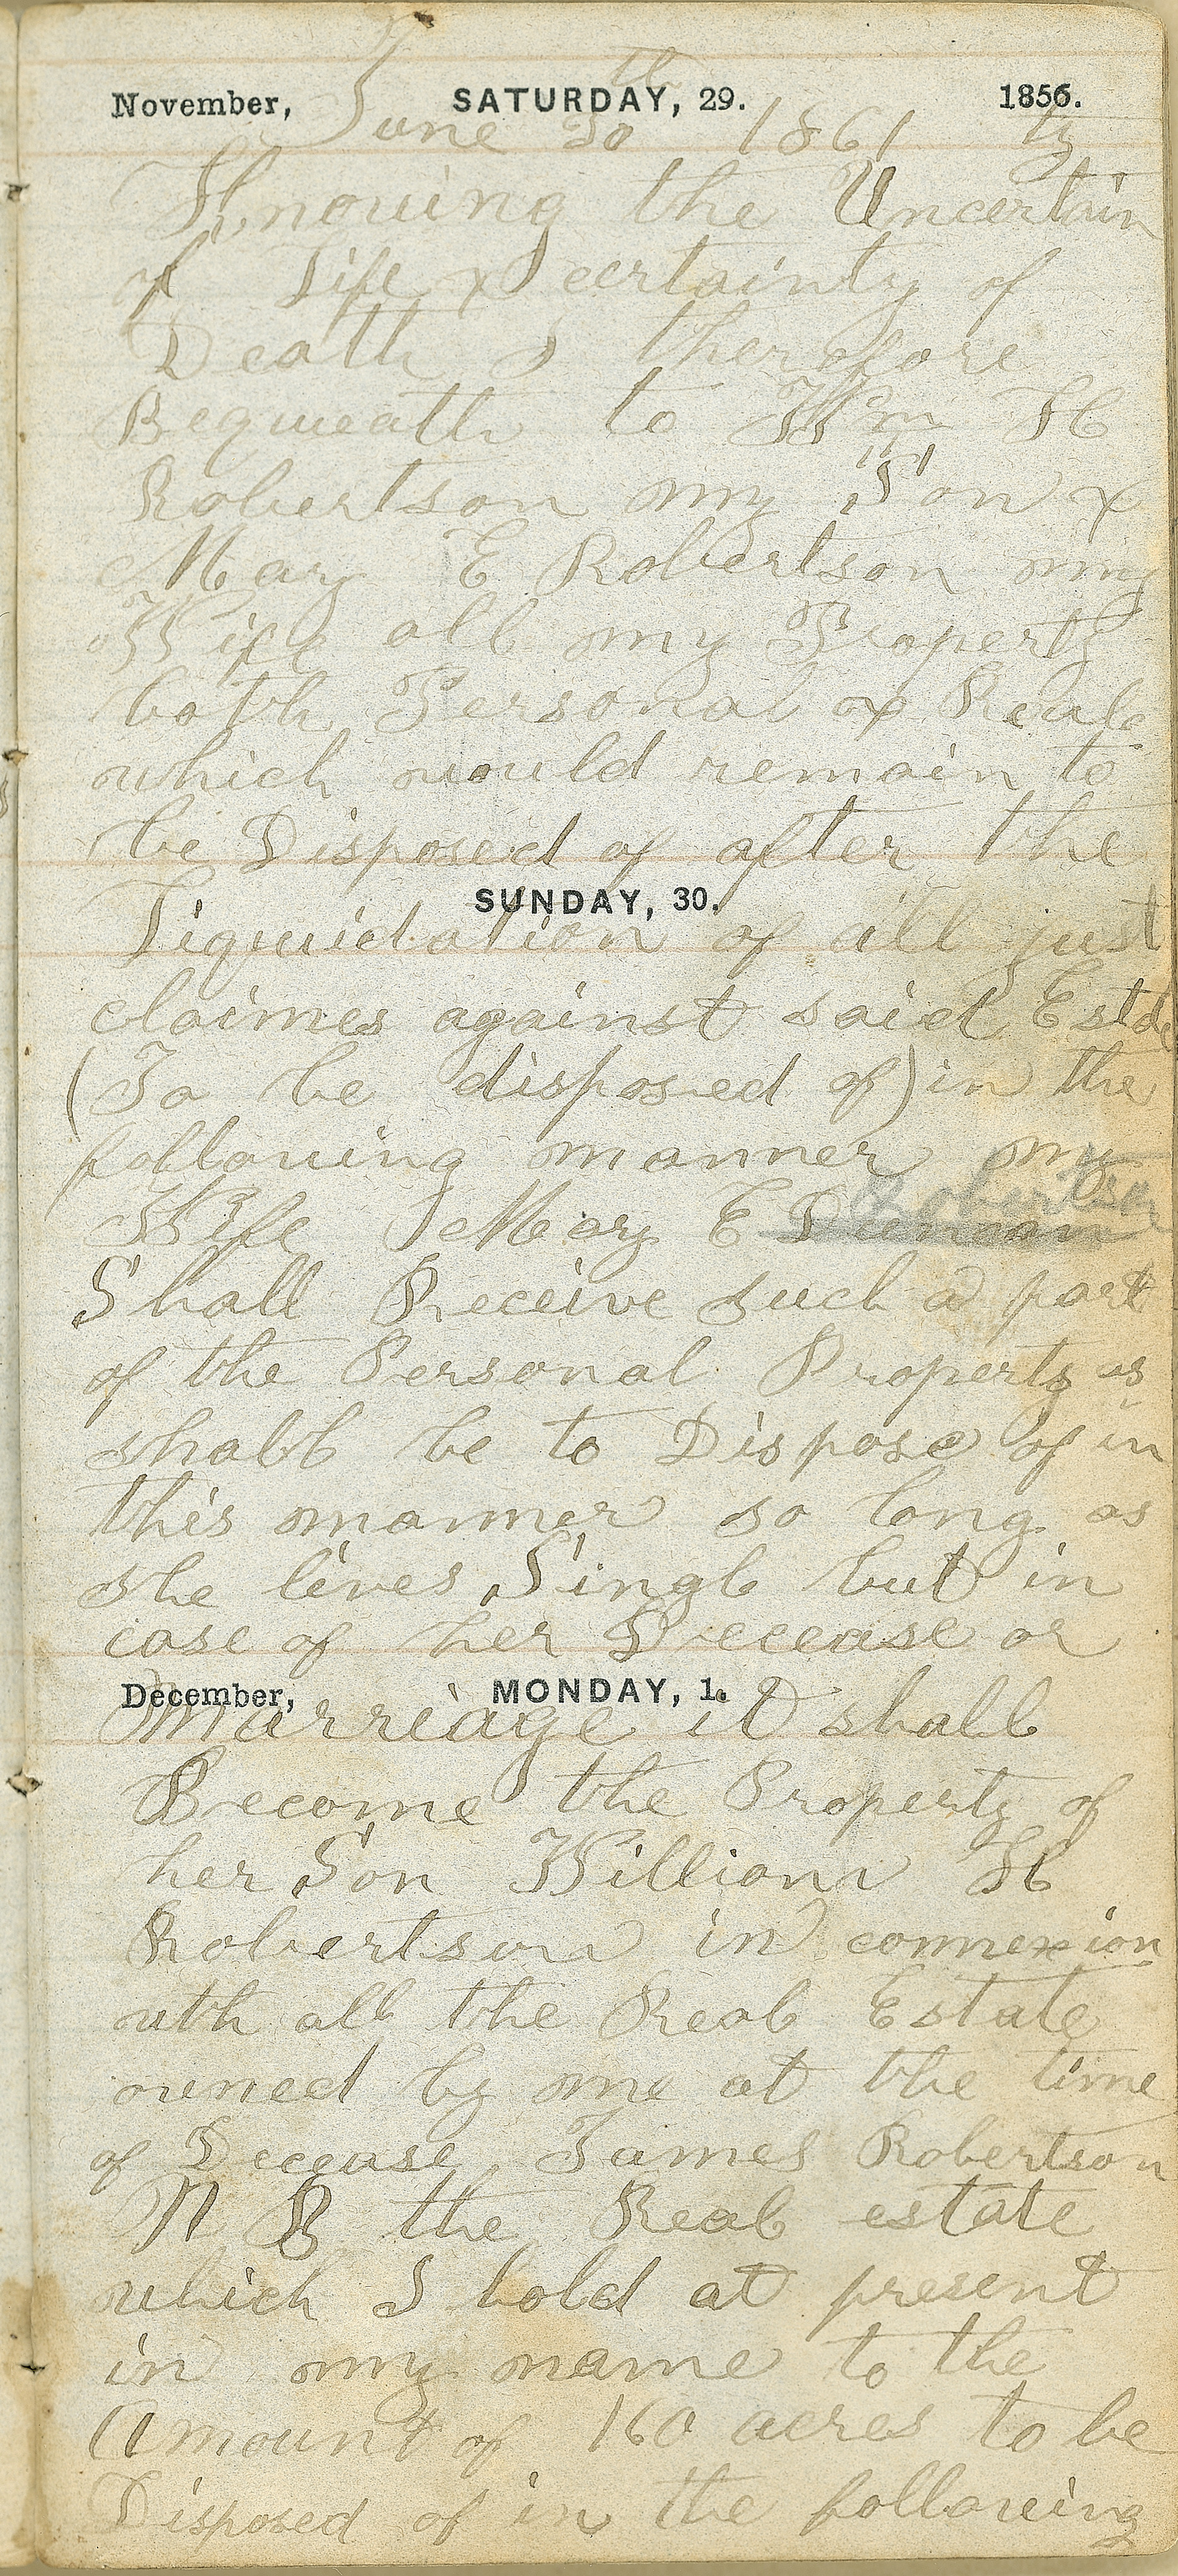 November, SATURDAY, 29. 1856.
June 30th 1861
Knowing the Uncertainty
of Life & certainty of
Death I therefore
Bequeath to Wm H
Robertson my Son &
Mary E Robertson my
Wife all my Property
both Personal & Real
which would remain to
be Disposed of after the
SUNDAY, 30.
Liquidation of all just
claimes against said Estde
(To be disposed of) in the
following manner my
Robertson
Wife Mary E Duncan
Shall Receive such a part
of the Personal Property as
shall be to Dispose of in
this manner so long as
she lives Singl but in
case of her Decease or
December, MONDAY, 1.
Marriage it shall
Become the Property of
her Son William H
Robertson in connexion
with all the Real Estate
owned by me at the time
of Decease James Robertson
N B the Real estate
which I hold at present
in my name to the
Amount of 160 acres to be
Disposed of in the following